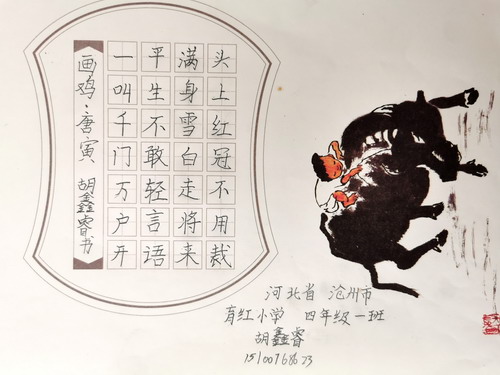 头上红冠不用裁
满身雪白走将来
平生不敢轻言语
一叫千门万户开
画鸡·唐寅 胡鑫睿书
河北省 沧州市
育红小学 四年级一班
胡鑫睿
15100768623